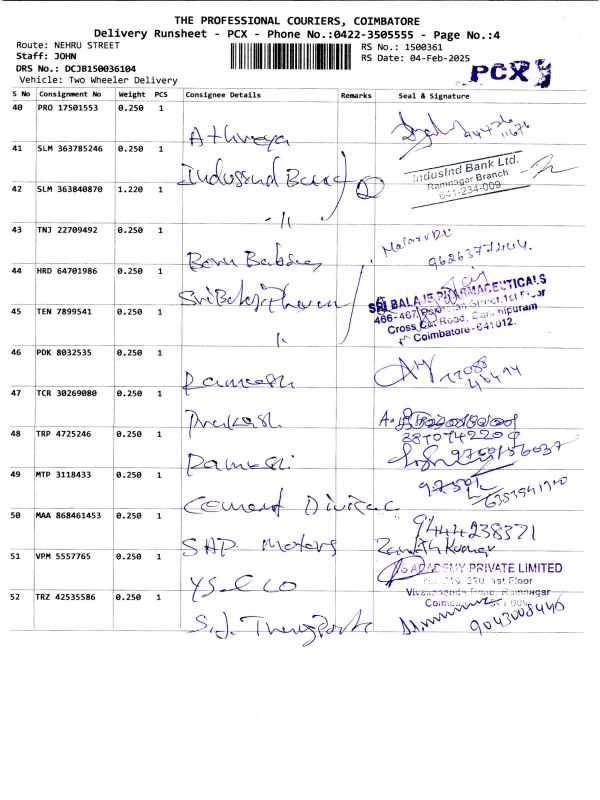 THE PROFESSIONAL COURIERS, COIMBATORE
Delivery Runsheet - PCX - Phone No.:0422-3505555 - Page No.:4
Route: NEHRU STREET
RS No.: 1500361
Staff: JOHN
RS Date: 04-Feb-2025
DRS No.: DCJB150036104
PCX
Vehicle: Two Wheeler Delivery
S No Consignment No Weight PCS Consignee Details Remarks Seal & Signature
40 PRO 17501553 0.250 1
Athreya
41 SLM 363785246 0.250 1
Indussind Bank
IndusInd Bank Ltd.
Ramnagar Branch
641-234-009
42 SLM 363840870 1.220 1
2
-11
43 TNJ 22709492 0.250 1
9626377444
44 HRD 64701986 0.250 1
Sri Balaji Pharma
SRI BALAJE PHARMACEUTICALS
466-467, Street, 1st Floor
Cross Cut Road, Gandhipuram
Coimbatore-641012.
45 TEN 7899541 0.250 1
11
46 PDK 8032535 0.250 1
Ramesh
47 TCR 30269080 0.250 1
Prakash
48 TRP 4725246 0.250 1
Ramesh
49 MTP 3118433 0.250 1
Cement
50 MAA 868461453 0.250 1
9444238371
SAP Motors
51 VPM 5557765 0.250 1
IS ACADEMY PRIVATE LIMITED
No. 219, 220, 1st Floor
Vivekananda Road, Ramnagar
52 TRZ 42535586 0.250 1
S.J.
9043008440